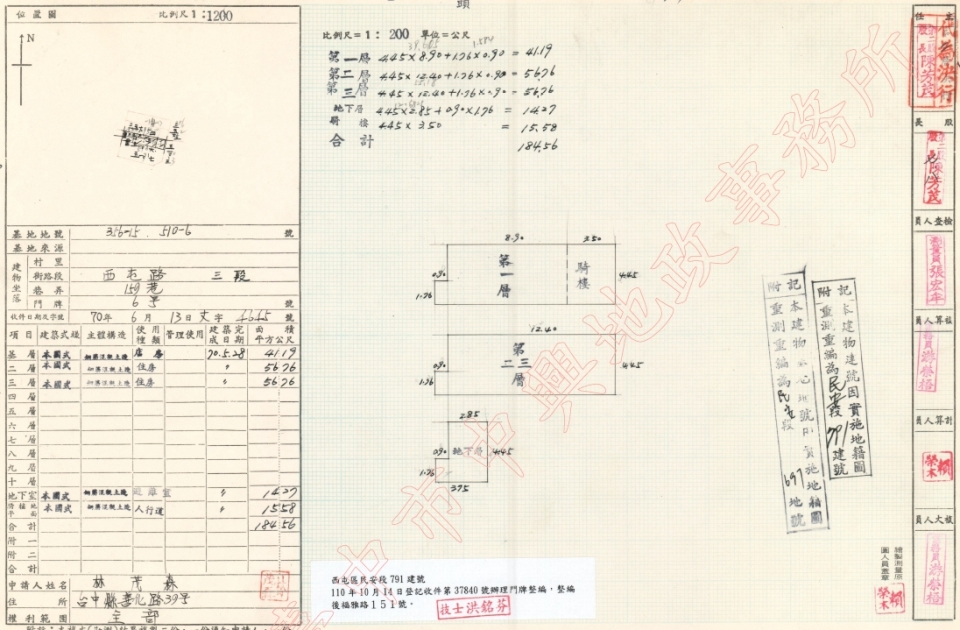 位置圖 比例尺1:1200
N
基地地號 356-15 510-6 號
基地來源
建物坐落
村里
街路段 西屯路 三段
巷弄 159巷
門牌 6号 號
收件日期及字號 70年6月13日 字4645號
項目 建築式樣 主體構造 使用種類 管理使用 建築完成日期 面積平方公尺
基層 本國式 鋼筋混凝土造 店房 70.5.28 41.19
二層 本國式 鋼筋混凝土造 住房 〃 56.76
三層 本國式 鋼筋混凝土造 住房 〃 56.76
四層
五層
六層
七層
八層
九層
十層
地下室 本國式 鋼筋混凝土造 避難室 〃 14.27
本國式 鋼筋混凝土造 人行道 〃 15.58
合計 184.56
附一
附二
合計
申請人姓名 林茂森
住所 台中縣善化路39号
權利範圍 全部
比例尺=1:200 單位=公尺
第一層 4.45×8.90+1.76×0.90 = 41.19
第二層 4.45×12.40+1.76×0.90 = 56.76
第三層 4.45×12.40+1.76×0.90 = 56.76
地下層 4.45×2.85+0.90×1.76 = 14.27
騎樓 4.45×3.50 = 15.58
合計 184.56
8.90 3.50
0.90 第一層 騎樓 4.45
1.76
12.40
0.90 第二三層 4.45
1.76
2.85
0.90 地下層 4.45
1.76
3.75
附記
本建物建號因實施地籍圖
重測重編為民安段791建號
附記
本建物基地地號因實施地籍圖
重測重編為民安段697地號
西屯區民安段791建號
110年10月14日登記收件第37840號辦理門牌整編,整編
後福雅路151號。
技士洪銘芬
主任
代為決行
股長陳芳茂
股長
第二股股長陳芳茂
檢查人員
測量員張宏幸
校算人員
計算人員
賴榮木
核大人員
繪製測量原圖人員蓋章
賴榮木
台中市中興地政事務所